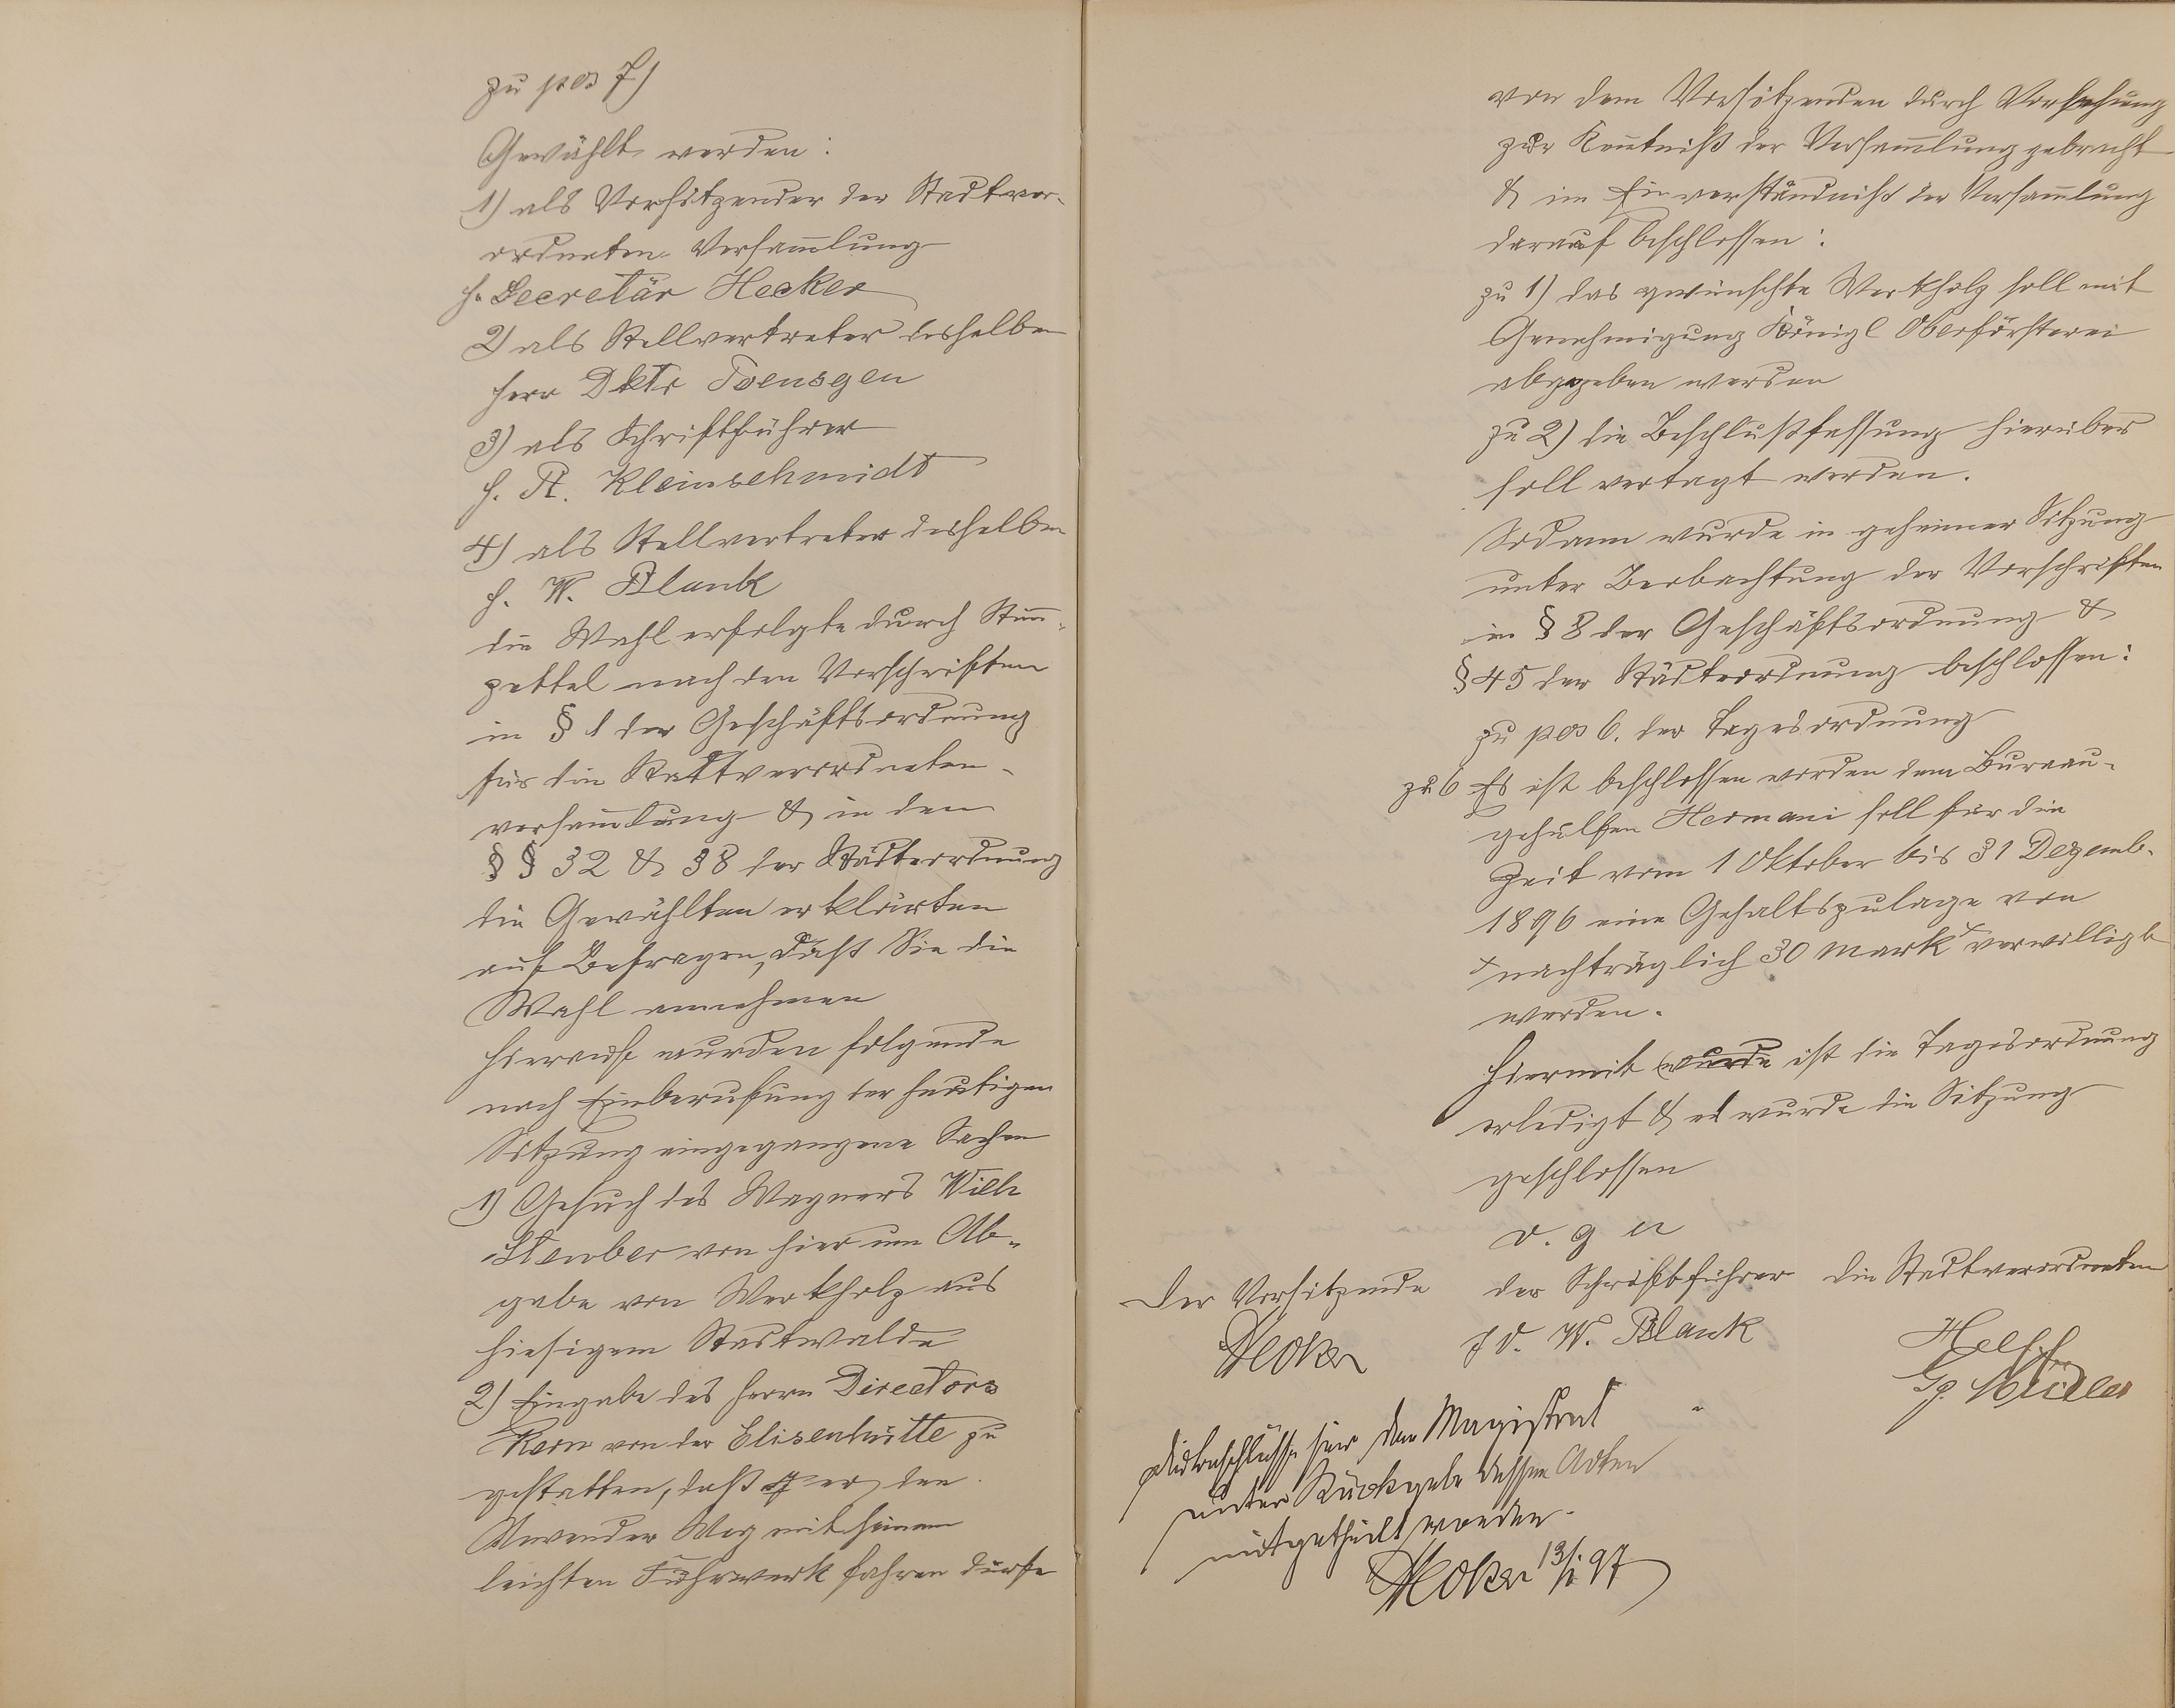 zu pos 7)
Gewählt werden:
1) als Vorsitzender der Stadtver-
ordneten Versam̄lung
H. Secretär Hecker
2) als Stellvertreter desselben
Herr Dktr Toensgen
3) als Schriftführer
H. A. Kleinschmidt
4) als Stellvertreter desselben
H. W. Blank
die Wahl erfolgte durch Stim̄-
zettel nach den Vorschriften
in § 1 der Geschäftsordnung
für die Stadtverordneten-
versam̄lung & in den
§ § 32 & 38 der Städteordnung
die Gewählten erklärten
auf Befragen, daß Sie die
Wahl annehmen
Hierauf wurden folgende
nach Einberufung der heutigen
Sitzung eingegangene Sachen
1) Gesuch des Wagners Wilh
Stember von hier um Ab-
gabe von Werkholz aus
hiesigem Stadtwalde
2) Eingabe des Herrn Directors
Kern von der Elisenhütte zu
gestatten, daß er den
Weg mit seinem
leichten Fuhrwerk fahren dürfe
von dem Vorsitzenden durch Vorlesung
zur Ken̄tniß der Versam̄lung gebracht
& im Einverständniß der Versam̄lung
darauf beschlossen:
zu 1) das gewünschte Werkholz soll mit
Genehmigung Königl Oberförsterei
abgegeben werden
zu 2) die Beschlußfassung hierüber
soll vertagt werden.
Sodann wurde in geheimer Sitzung
unter Beobachtung der Vorschriften
in § 8 der Geschäftsordnung &
§ 45 der Städteordnung beschlossen:
zu pos 6. der Tagesordnung
zu 6 Es ist beschlossen worden dem Bureau-
gehülfen Hermani soll für die
Zeit vom 1 Oktober bis 31 Dezemb.
1896 eine Gehaltszulage von
× nachträglich 30 Mark × verwilligt
werden.
Hiermit wurde ist die Tagesordnung
erledigt & es wurde die Sitzung
geschlossen
v. g u
Der Vorsitzende der Schriftführer die Stadtverordneten
Hecker J V. W. Blank Helff
Gg. Müller
sind dem Magistrat
unter Rückgabe dessen Akten
mitgetheilt worden.
Hecker 13/1 97